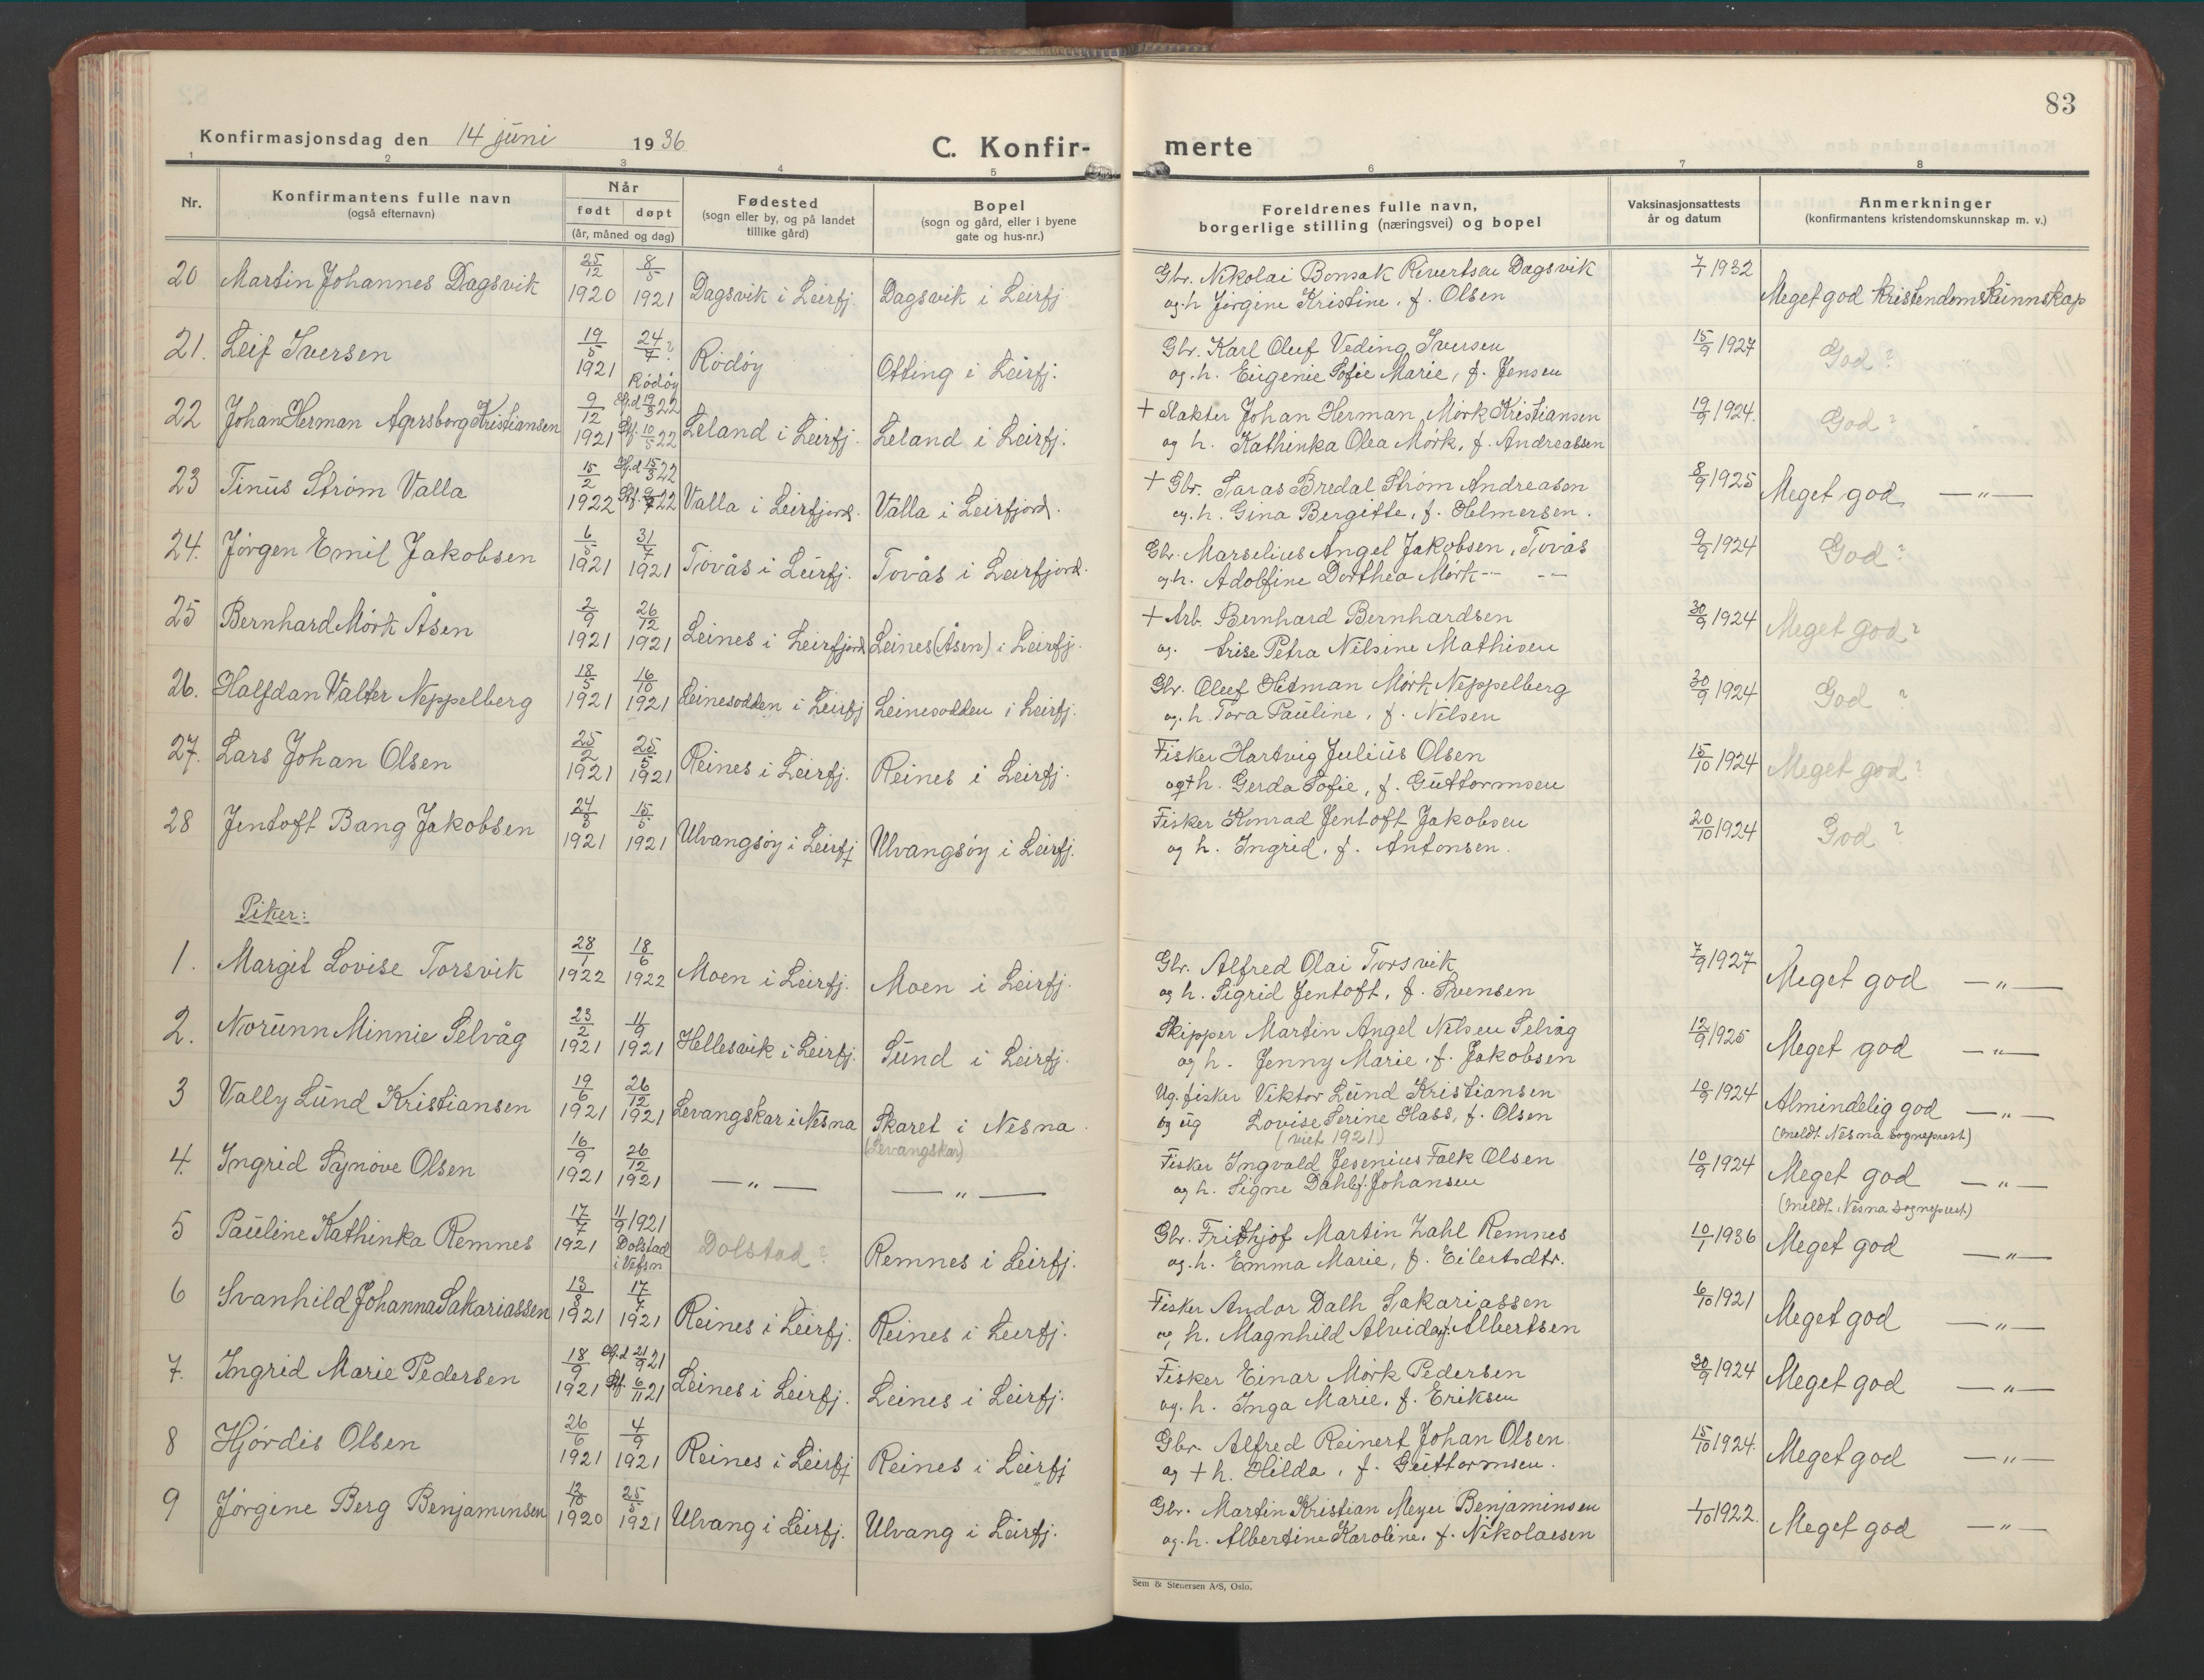 83
Konfirmasjonsdag den 14 juni 1936
C. Konfir-
merte
1 2 3 4 5 6 7 8
Nr.
Konfirmantens fulle navn
(også efternavn)
Når
født døpt
(år, måned og dag)
Fødested
(sogn eller by, og på landet
tillike gård)
Bopel
(sogn og gård, eller i byene
gate og hus-nr.)
Foreldrenes fulle navn,
borgerlige stilling (næringsvei) og bopel
Vaksinasjonsattests
år og datum
Anmerkninger
(konfirmantens kristendomskunnskap m. v.)
20 Martin Johannes Dagsvik 25/12 1920 8/5 1921 Dagsvik i Leirfj. Dagsvik i Leirfj.
Gbr. Nikolai Bonsak Sivertsen Dagsvik 7/1 1932
og h Jørgine Kristine, f. Olsen Meget god kristendomskunnskap
21. Leif Iversen 19/5 1921 24/7? Rødøy Rødøy Otting i Leirfj.
Gbr. Karl Oluf Veding Iversen 15/9 1927 God?
og. h. Eugenie Sofie Marie, f. Jensen
22 Johan Herman Agersborg Kristiansen 9/12 1921 Hj.d 19/3 22 Stf 10/5 22 Leland i Leirfj. Leland i Leirfj.
+ Slakter Johan Herman Mørk Kristiansen 19/9 1924. God?
og h. Kathinka Olea Mørk, f. Andreassen
23 Tinus Strøm Valla 15/2 1922 Hj.d 15/3 22 Stf. 9/7 22 Valla i Leirfjord. Valla i Leirfjord.
+ Gbr. Saras Bredal Strøm Andreasen 8/9 1925 Meget god —"—
og. h. Gina Bergitte, f. Helmersen.
24. Jørgen Emil Jakobsen 6/5 1921 31/7 1921 Tovås i Leirfj. Tovås i Leirfjord.
Gbr. Marselius Angel Jakobsen, Tovås 9/9 1924 God?
og h. Adolfine Dorthea Mørk -"- -"-
25 Bernhard Mørk Åsen 2/9 1921 26/12 1921 Leines i Leirfjord Leines (Åsen) i Leirfj.
+ Arb. Bernhard Bernhardsen 30/9 1924 Meget god?
og. Petra Nilsine Mathisen
26. Halfdan Valter Neppelberg 18/5 1921 16/10 1921 Leinesodden i Leirfj Leinesodden i Leirfj.
Gbr. Oluf Hitman Mørk Neppelberg 30/9 1924 God ?
og. h. Tora Pauline, f. Nilsen
27. Lars Johan Olsen 25/2 1921 25/5 1921 Reines i Leirfj. Reines i Leirfj.
Fisker Hartvig Julius Olsen 15/10 1924 Meget god?
og + h. Gerda Sofie, f. Guttormsen
28 Jentoft Bang Jakobsen 24/3 1921 15/5 1921 Ulvangsøy i Leirfj Ulvangsøy i Leirfj.
Fisker Konrad Jentoft Jakobsen 20/10 1924 God ?
og h. Ingrid, f. Antonsen.
Piker:
1. Margit Lovise Torsvik 28/1 1922 18/6 1922 Moen i Leirfj. Moen i Leirfj.
Gbr. Alfred Olai Torsvik 7/9 1927
og h. Sigrid Jentoft, f. Svensen Meget god —"—
2. Norunn Minnie Selvåg 23/2 1921 11/9 1921 Hellesvik i Leirfj. Sund i Leirfj.
Skipper Martin Angel Nilsen Selvåg 12/9 1925 Meget god —"—
og h. Jenny Marie, f. Jakobsen
3 Vally Lund Kristiansen 19/6 1921 26/12 1921 Levangskar i Nesna Skaret i Nesna
(Levangskar)
Ug. fisker Viktor Lund Kristiansen 10/9 1924 Almindelig god —"—
og ug Lovise Serine Hass, f. Olsen (meldt Nesna sogneprest)
(viet 1921)
4. Ingrid Synøve Olsen 16/9 1921 26/12 1921 —"— —"—
Fisker Ingvald Jesenius Falk Olsen 10/9 1924 Meget god —"—
og h. Signe Dahl f. Johansen (meldt, Nesna sogneprest)
5 Pauline Kathinka Remnes 17/7 1921 11/9 1921 Dolstad i Vefsn Dolstad? Remnes i Leirfj.
Gbr. Frithjof Martin Zahl Remnes 10/1 1936 Meget god —"—
og. h. Emma Marie, f. Eilertsdtr.
6 Svanhild Johanna Sakariassen 13/3 1921 17/7 1921 Reines i Leirfj. Reines i Leirfj.
Fisker Andor Dalh Sakariassen 6/10 1921 Meget god —"—
og h. Magnhild Alvida f. Albertsen
7. Ingrid Marie Pedersen 18/9 1921 Hj.d 21/9 21 Stf. 6/11 21 Leines i Leirfj. Leines i Leirfj.
Fisker Einar Mørk Pedersen 30/9 1924 Meget god —"—
og. h. Inga Marie, f. Eriksen
8 Hjørdis Olsen 26/6 1921 4/9 1921 Reines i Leirfj Reines i Leirfj
Gbr. Alfred Reinert Johan Olsen 15/10 1924. Meget god —"—
og + h. Hilda, f. Guttormsen.
9 Jørgine Berg Benjaminsen 12/10 1920 25/5 1921 Ulvang i Leirfj. Ulvang i Leirfj.
Gbr. Martin Kristian Meyer Benjaminsen 1/10 1922. Meget god —"—
og. h. Albertine Karoline, f. Nikolaisen
Sem & Stenersen A/S, Oslo.